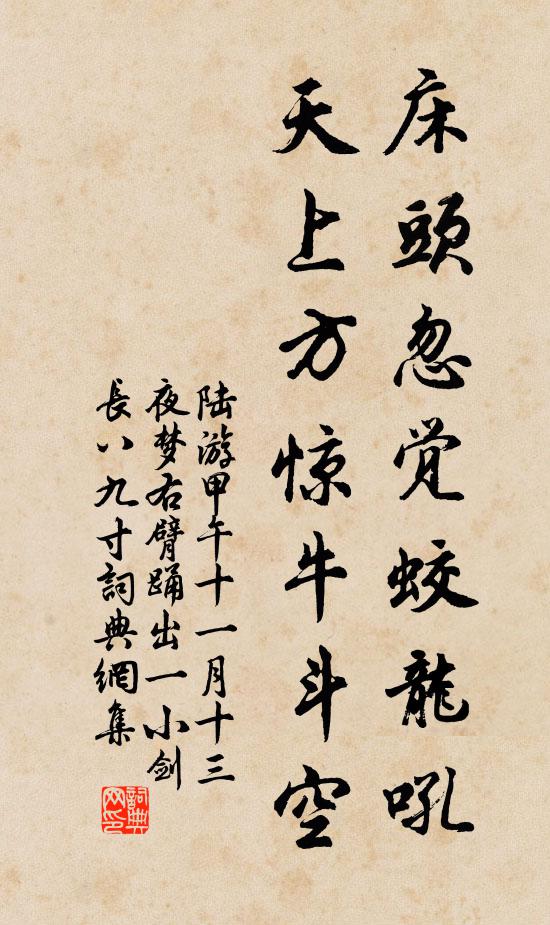 床頭忽觉蛟龍吼
天上方惊牛斗空
陆游甲午十一月十三
夜梦右臂踊出一小剑
長八九寸詞典網集
詞典
网印